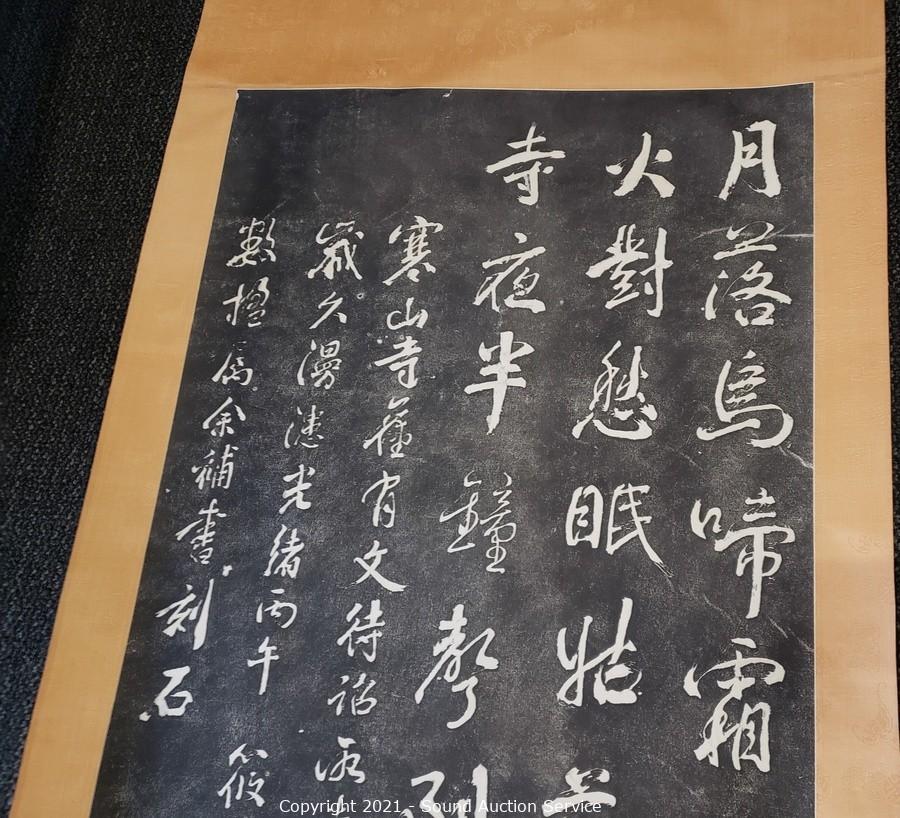 月落烏啼霜
火對愁眠姑
寺夜半鐘聲到
寒山寺舊有文待詔所
歲久漫漶光緒丙午筱
數楹屬余補書刻石
Copyright 2021 - Sound Auction Service